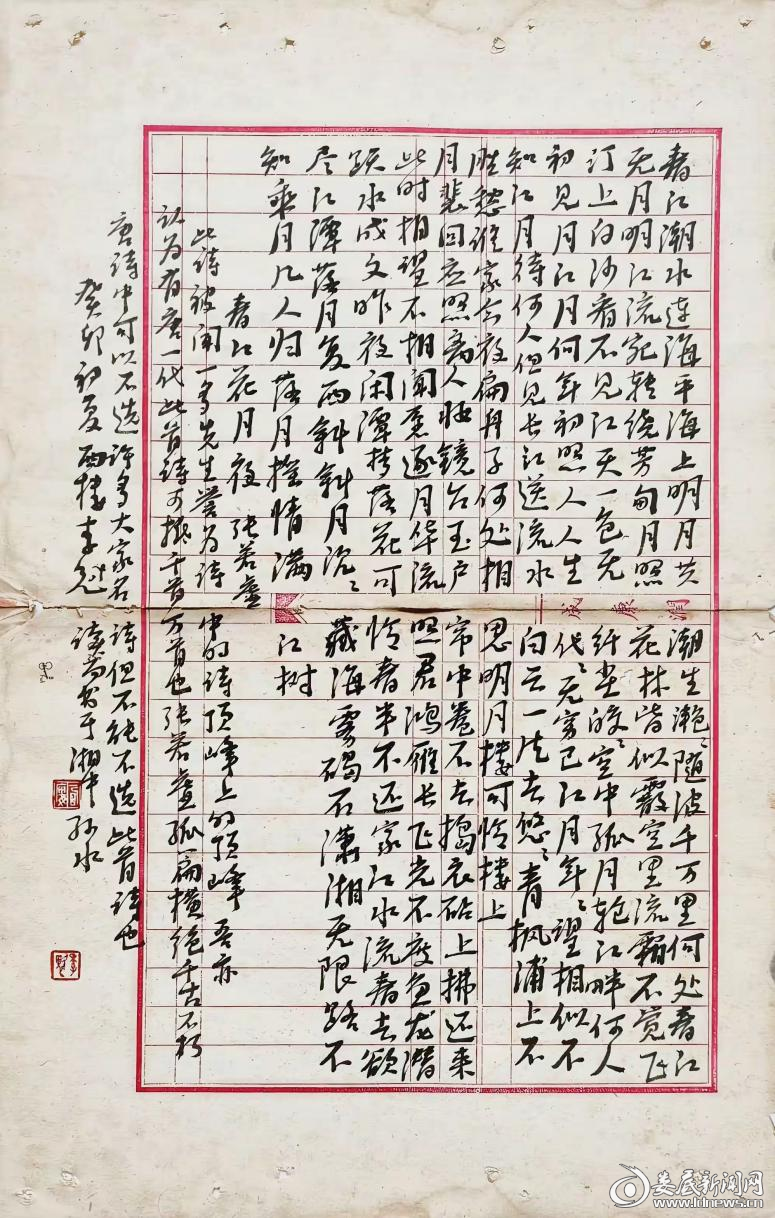 春江潮水连海平海上明月共潮生滟々随波千万里何处春江
无月明江流宛转绕芳甸月照花林皆似霰空里流霜不觉飞
汀上白沙看不见江天一色无纤尘皎々空中孤月轮江畔何人
初见月江月何年初照人人生代々无穷已江月年々望相似不
知江月待何人但见长江送流水白云一片去悠々青枫浦上不
胜愁谁家今夜扁舟子何处相思明月楼可怜楼上
月裴回应照离人妆镜台玉户帘中卷不去捣衣砧上拂还来
此时相望不相闻愿逐月华流照君鸿雁长飞光不度鱼龙潜
跃水成文昨夜闲潭梦落花可怜春半不还家江水流春去欲
尽江潭落月复西斜斜月沉々藏海雾碣石潇湘无限路不
知乘月几人归落月摇情满江树
春江花月夜 张若虚
此诗被闻一多先生誉为诗中的诗顶峰上的顶峰 吾亦
认为有唐一代此首诗可抵千首万首也张若虚孤篇横绝千古不朽
唐诗中可以不选许多大家名诗但不能不选此首诗也
癸卯初夏西楼李 书于湘中孙水
娄底新闻网
www.ldnews.cn